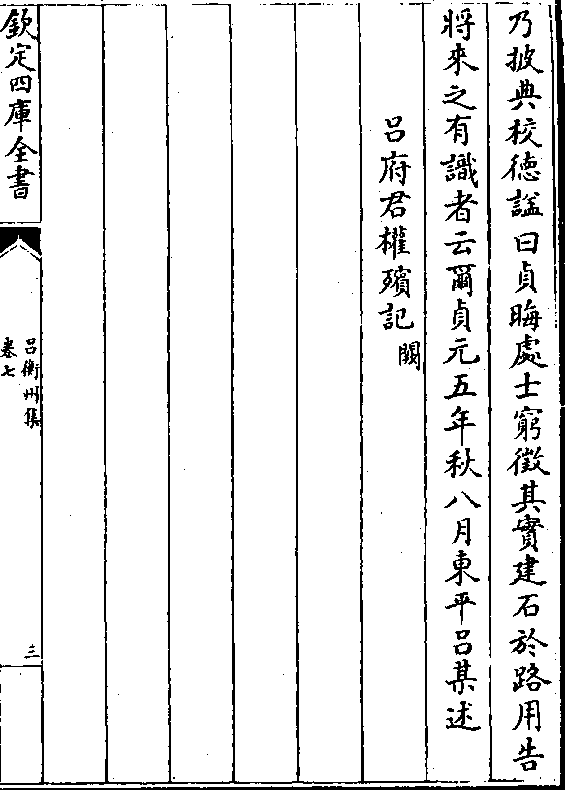 乃披典校徳諡曰貞晦處士窮徵其實建石於路用告
將來之有識者云爾貞元五年秋八月東平吕某述
吕府君權殯記闕
欽定四庫全書
吕衡州集
卷七
三